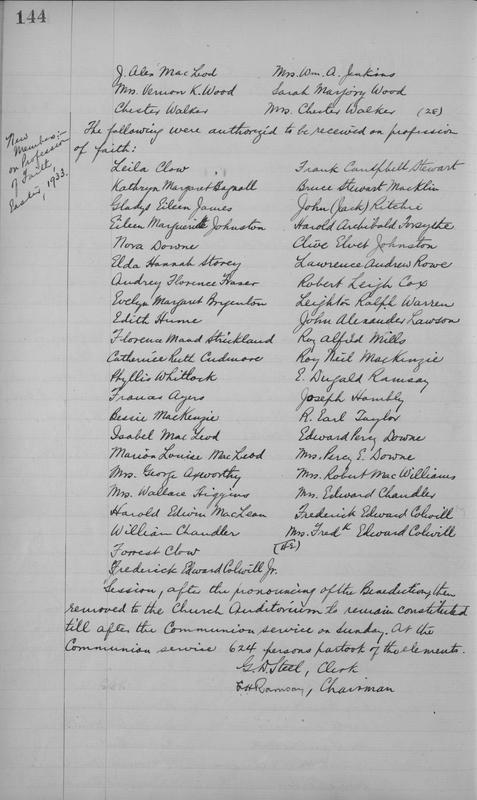 144
J. Alex MacLeod Mrs. Wm. A. Jenkins
Mrs. Vernon K. Wood Sarah Marjory Wood
Chester Walker Mrs. Chester Walker (28)
New
Members:-
on Profession
of Faith,
Easter, 1933.
The following were authorized to be received on profession
of faith:
Leila Clow Frank Cantpbell Stewart
Kathryn Margaret Bagnall Bruce Stewart Macklin
Gladys Eileen James John (Jack) Ritchie
Eileen Marguerite Johnston Harold Archibald Forsythe
Nora Downe Clive Elvet Johnston
Elda Hannah Storey Lawrence Andrew Rowe
Audrey Florence Fraser Robert Leigh Cox
Evelyn Margaret Leighton Ralph Warren
Edith Hume John Alexander Lawson
Florence Maud Strickland Roy Alfild Mills
Catherine Ruth Cudmore Roy Neil MacKenzie
Phyllis Whitlock E. Dugald Ramsay
Frances Ayers Joseph Hambly
Bessie MacKenzie R. Earl Taylor
Isabel MacLeod Edward Percy Downe
Marion Louise MacLeod Mrs. Percy E. Downe
Mrs. George Axworthy Mrs. Robert MacWilliams
Mrs. Wallace Higgins Mrs. Edward Chandler
Harold Edwin MacLean Frederick Edward Colwill
William Chandler Mrs. Fredk Edward Colwill
Forrest Clow
Frederick Edward Colwill Jr.
Session, after the pronouncing of the Benediction, then
removed to the Church Auditorium to remain constituted
till after the Communion service on Sunday. At the
Communion service 624 persons partook of the elements.
G. D. Steel, Clerk
Ramsay, Chairman